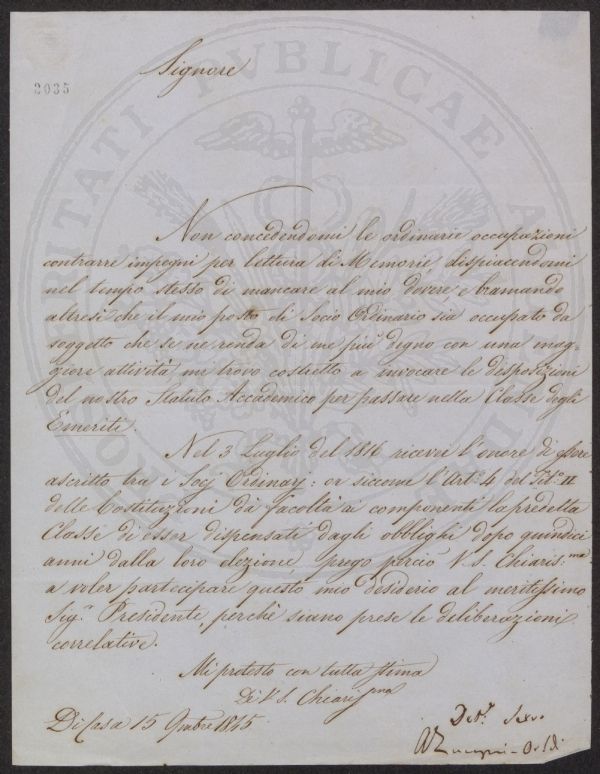 Signore
2035
PROSPERITATI PUBLICAE AUGENDAE
Non concedendomi le ordinarie occupazioni
contrarre impegni per lettura di Memorie, dispiacendomi
nel tempo stesso di mancare al mio dovere, e bramando
altresì che il mio posto di Socio Ordinario sia occupato da
soggetto che se ne renda di me più degno con una mag-
giore attività mi trovo costretto a invocare le disposizioni
del nostro Statuto Accademico per passare nella Classe degli
Emeriti.
Nel 3 Luglio del 1816 ricevei l'onore di essere
ascritto tra i Socj Ordinarj: or siccome l'Art.° 4 del Tit.° II
delle Costituzioni dà facoltà ai componenti la predetta
Classe di esser dispensati dagli obblighi dopo quindici
anni dalla loro elezione, prego perciò V. S. Chiaris:ma
a voler partecipare questo mio desiderio al meritissimo
Sig.r Presidente, perchè siano prese le deliberazioni
correlative.
Mi protesto con tutta stima
Di V. S. Chiaris:ma
Di Casa 15 9mbre 1845
Dev.° Serv.
A Zuccagni-Orld.